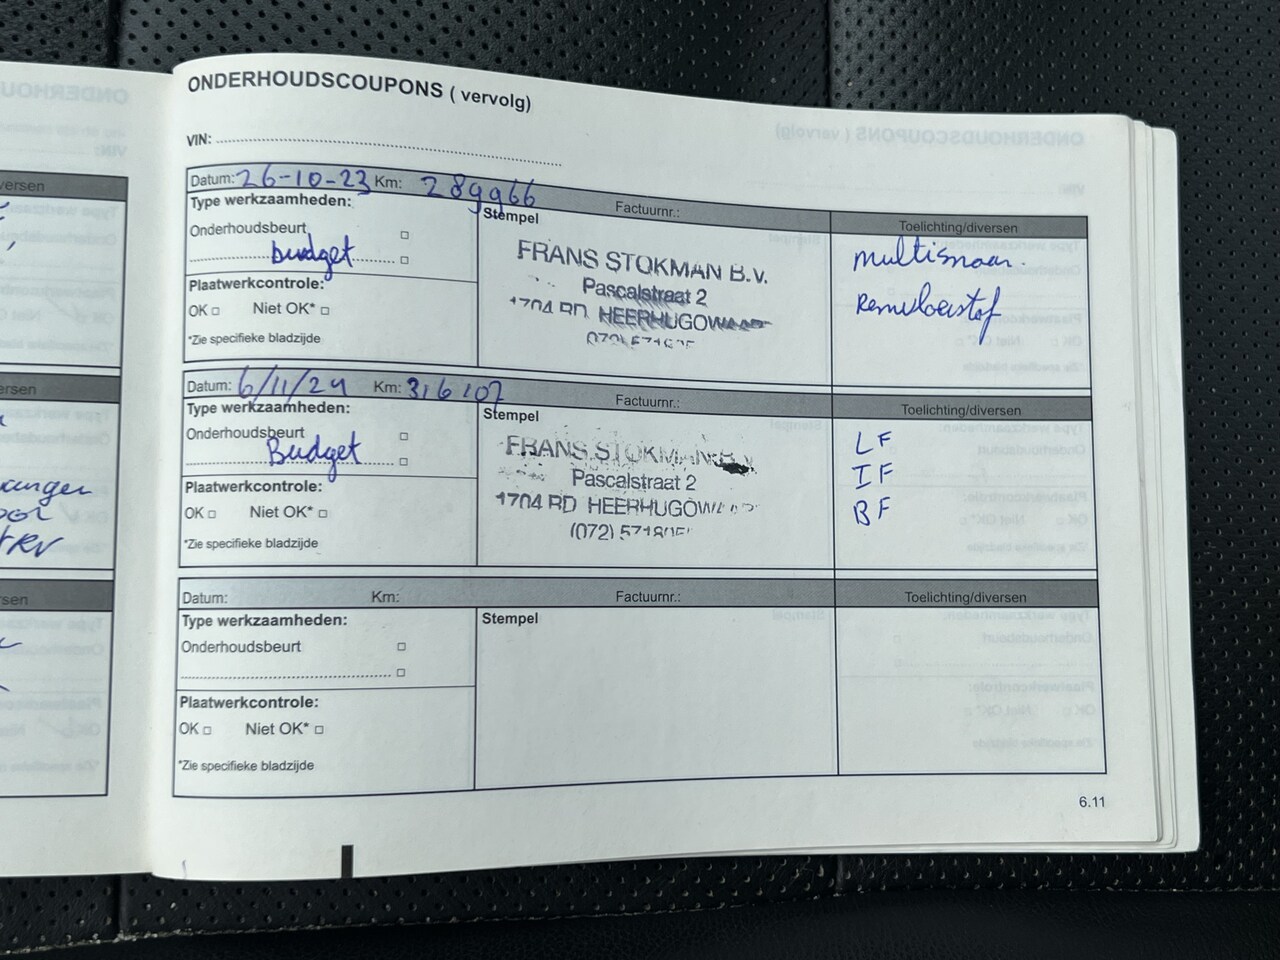 ONDERHOUDSCOUPONS ( vervolg)
VIN:
Datum: 26-10-23 Km: 289966 Factuurnr.:
Type werkzaamheden:
Onderhoudsbeurt
budget
Plaatwerkcontrole:
OK Niet OK*
*Zie specifieke bladzijde
Stempel
FRANS STOKMAN B.V.
Pascalstraat 2
1704 RD HEERHUGOWAARD
Toelichting/diversen
multisnaar.
Remvloeistof
Datum: 6/11/24 Km: 316107 Factuurnr.:
Type werkzaamheden:
Onderhoudsbeurt
Budget
Plaatwerkcontrole:
OK Niet OK*
*Zie specifieke bladzijde
Stempel
FRANS STOKMAN B.V.
Pascalstraat 2
1704 RD HEERHUGOWAARD
(072)
Toelichting/diversen
LF
IF
BF
Datum: Km: Factuurnr.:
Type werkzaamheden:
Onderhoudsbeurt
Plaatwerkcontrole:
OK Niet OK*
*Zie specifieke bladzijde
Stempel
Toelichting/diversen
6.11